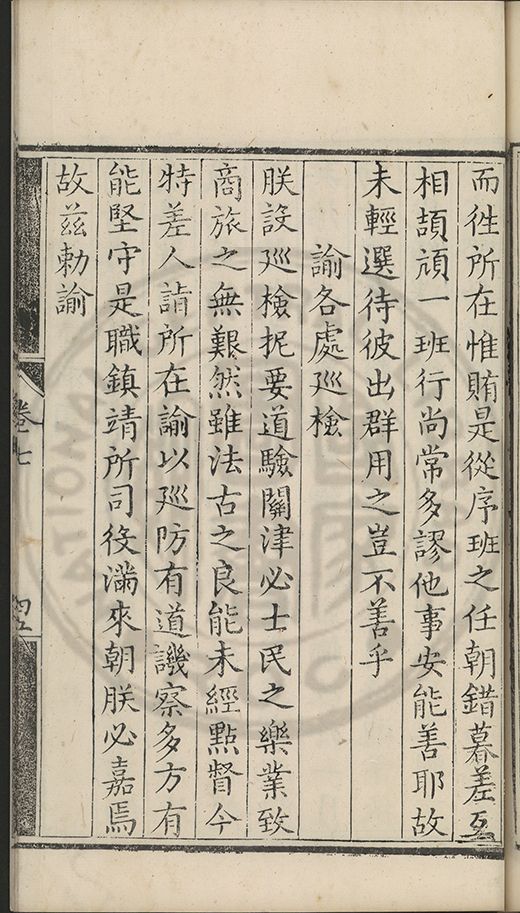 而徃所在惟賄是從序班之任朝錯暮差互
相頡頏一班行尚常多謬他事安能善耶故
未輕選待彼出群用之豈不善乎
諭各處廵檢
朕設廵檢扼要道驗關津必士民之樂業致
商旅之無艱然雖法古之良能未經點督今
特差人詣所在諭以廵防有道譏察多方有
能堅守是職鎮靖所司役滿來朝朕必嘉焉
故兹勅諭
卷七
四